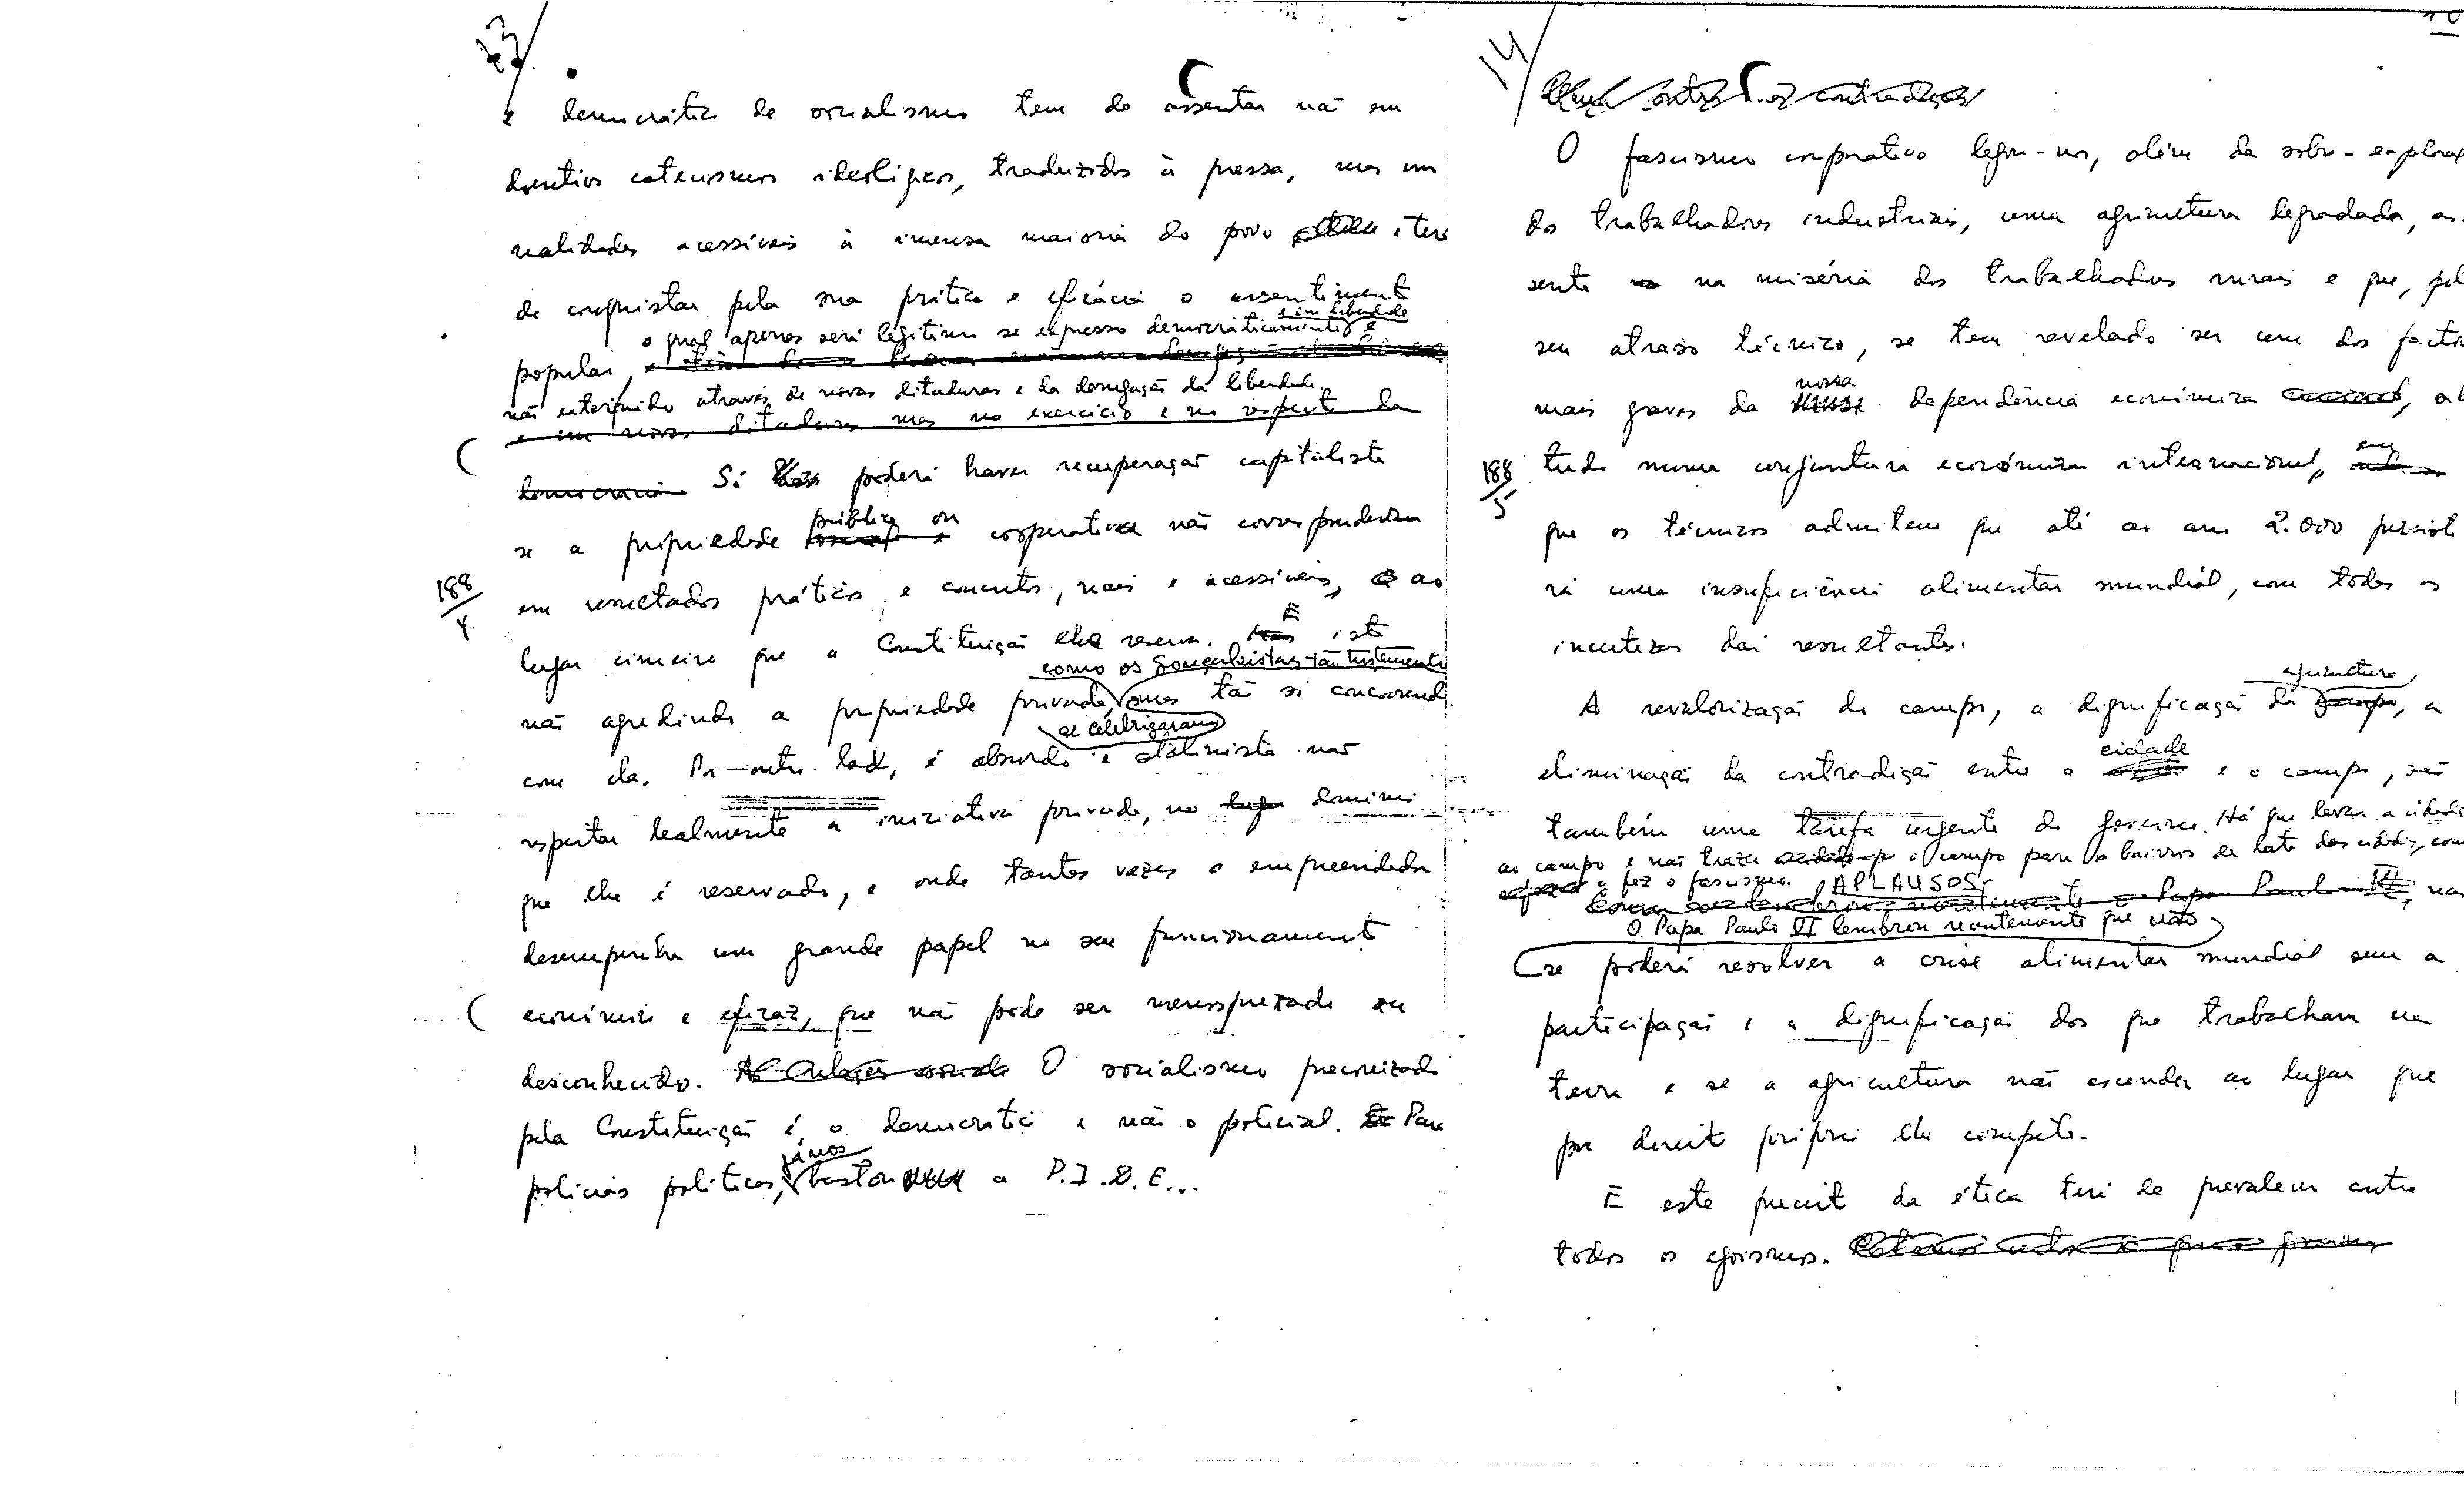 13
e democrático de socialismo tem de assentar não em
doentios catecismos ideológicos, traduzidos à pressa, mas em
realidades acessíveis à imensa maioria do povo e terá
de conquistar pela sua prática e eficácia o assentimento
e em liberdade
o qual apenas será legítimo se expresso democraticamente e
popular,
não extorquido através de novas ditaduras e da denegação da liberdade.
e em novas ditaduras mas no exercício e no respeito da
democracia Só poderá haver recuperação capitalista
pública ou
se a propriedade cooperativa não corresponderem
188/4
em resultados práticos e concretos, reais e acessíveis, ao
lugar cimeiro que a Constituição lhe reserva. E isto
como os gonçalvistas tão tristemente
não agredindo a propriedade privada, mas tão só concorrendo
se celebrizaram
com ela. Por outro lado, é absurdo e stalinista não
respeitar lealmente a iniciativa privada, no domínio
que lhe é reservado, e onde tantas vezes o empreendedor
desempenha um grande papel no seu funcionamento
económico e eficaz, que não pode ser menosprezado ou
desconhecido. O socialismo preconizado
pela Constituição é o democrático e não o policial. Para
já nos
polícias políticas, bastou a P.I.D.E...
14
O fascismo corporativo legou-nos, além da sobre-explora
dos trabalhadores industriais, uma agricultura degradada, as
sente na miséria dos trabalhadores rurais e que, pel
seu atraso técnico, se tem revelado ser um dos facto
nossa
mais graves da dependência económica, sob
188/5
tudo numa conjuntura económica internacional, em
que os técnicos admitem que até ao ano 2.000 persisti
rá uma insuficiência alimentar mundial, com todas as
incertezas daí resultantes.
agricultura
A revalorização do campo, a dignificação da, a
cidade
eliminação da contradição entre a e o campo, são
também uma tarefa urgente do governo. Há que levar a cidade
ao campo e não trazer o campo para os bairros de lata das cidades, como
o fez o fascismo. APLAUSOS
Como o lembrou recentemente o Papa Paulo VI, não
O Papa Paulo VI lembrou recentemente que não
se poderá resolver a crise alimentar mundial sem a
participação e a dignificação dos que trabalham na
terra e se a agricultura não ascender ao lugar que
por direito próprio lhe compete.
E este preceito da ética terá de prevalecer contra
todos os egoísmos.